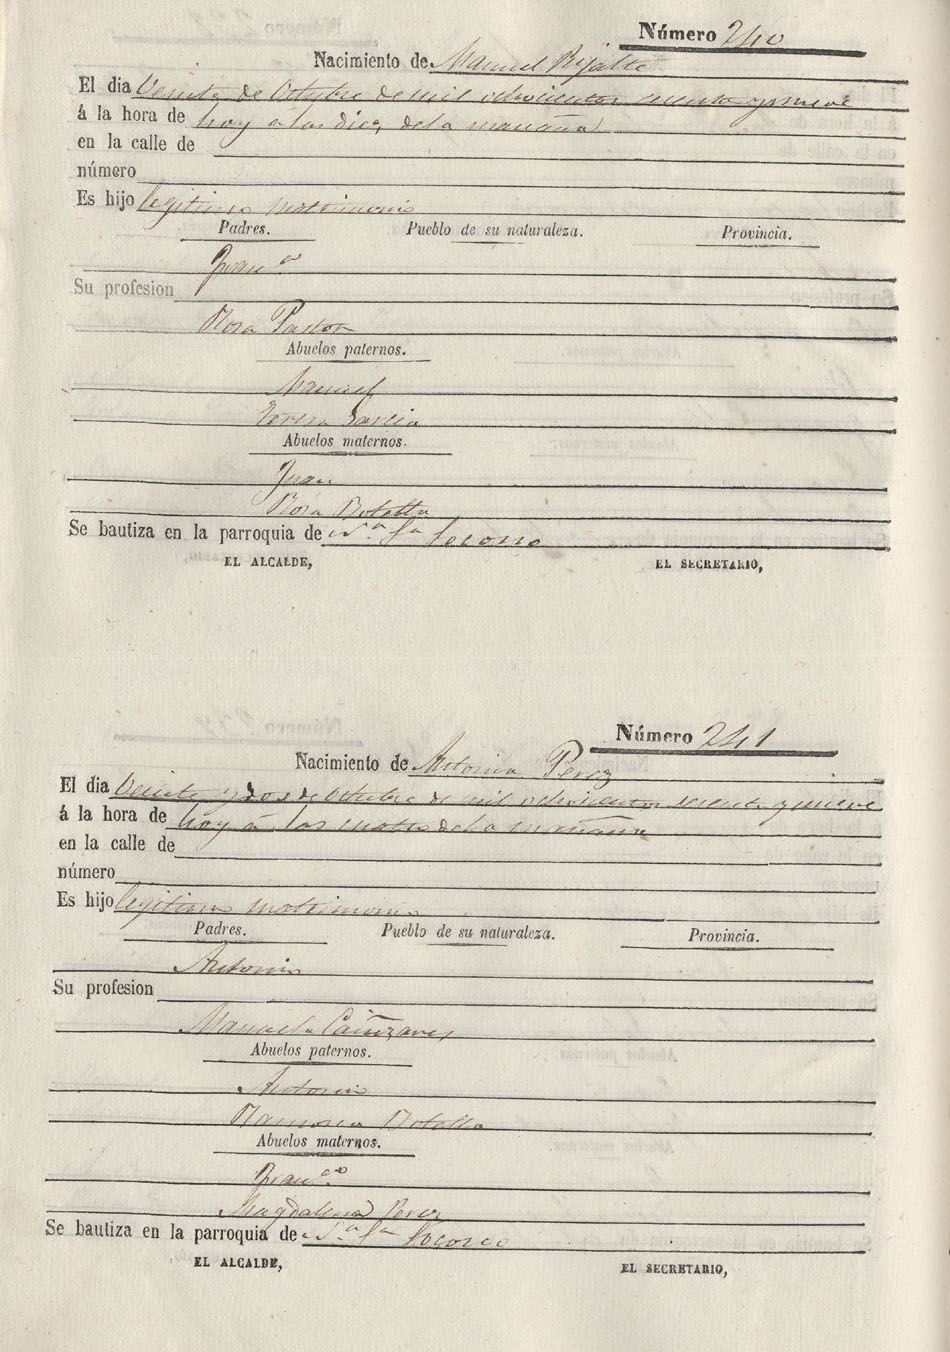 Número 240
Nacimiento de Manuel Rigalte
El dia Veinte de Octubre de mil ochocientos sesenta y nueve
á la hora de hoy a las diez de la mañana
en la calle de
número
Es hijo legitimo matrimonio
Padres. Pueblo de su naturaleza. Provincia.
Fran.co
Su profesion
Rosa Pastor
Abuelos paternos.
Manuel
Teresa Garcia
Abuelos maternos.
Juan
Rosa Botella
Se bautiza en la parroquia de N.a S.a Socorro
EL ALCALDE, EL SECRETARIO,
Número 241
Nacimiento de Antonia Perez
El dia Veinte y dos de Octubre de mil ochocientos sesenta y nueve
á la hora de hoy á las cuatro de la mañana
en la calle de
número
Es hijo legitimo matrimonio
Padres. Pueblo de su naturaleza. Provincia.
Antonio
Su profesion
Manuela Cañizares
Abuelos paternos.
Antonio
Ramona Botella
Abuelos maternos.
Fran.co
Magdalena Perez
Se bautiza en la parroquia de N.a S.a Socorro
EL ALCALDE, EL SECRETARIO,